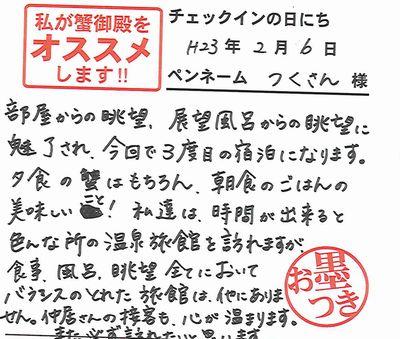 私が蟹御殿を
オススメ
します!!
チェックインの日にち
H23年 2月 6日
ペンネーム つくさん 様
部屋からの眺望、展望風呂からの眺望に
魅了され、今回で3度目の宿泊になります。
夕食の蟹はもちろん、朝食のごはんの
美味しいこと!私達は、時間が出来ると
色んな所の温泉旅館を訪れますが、
食事、風呂、眺望全てにおいて
バランスのとれた旅館は、他にありま
せん。仲居さんの接客も、心が温まります。
また必ず訪れたいと思います
お墨つき